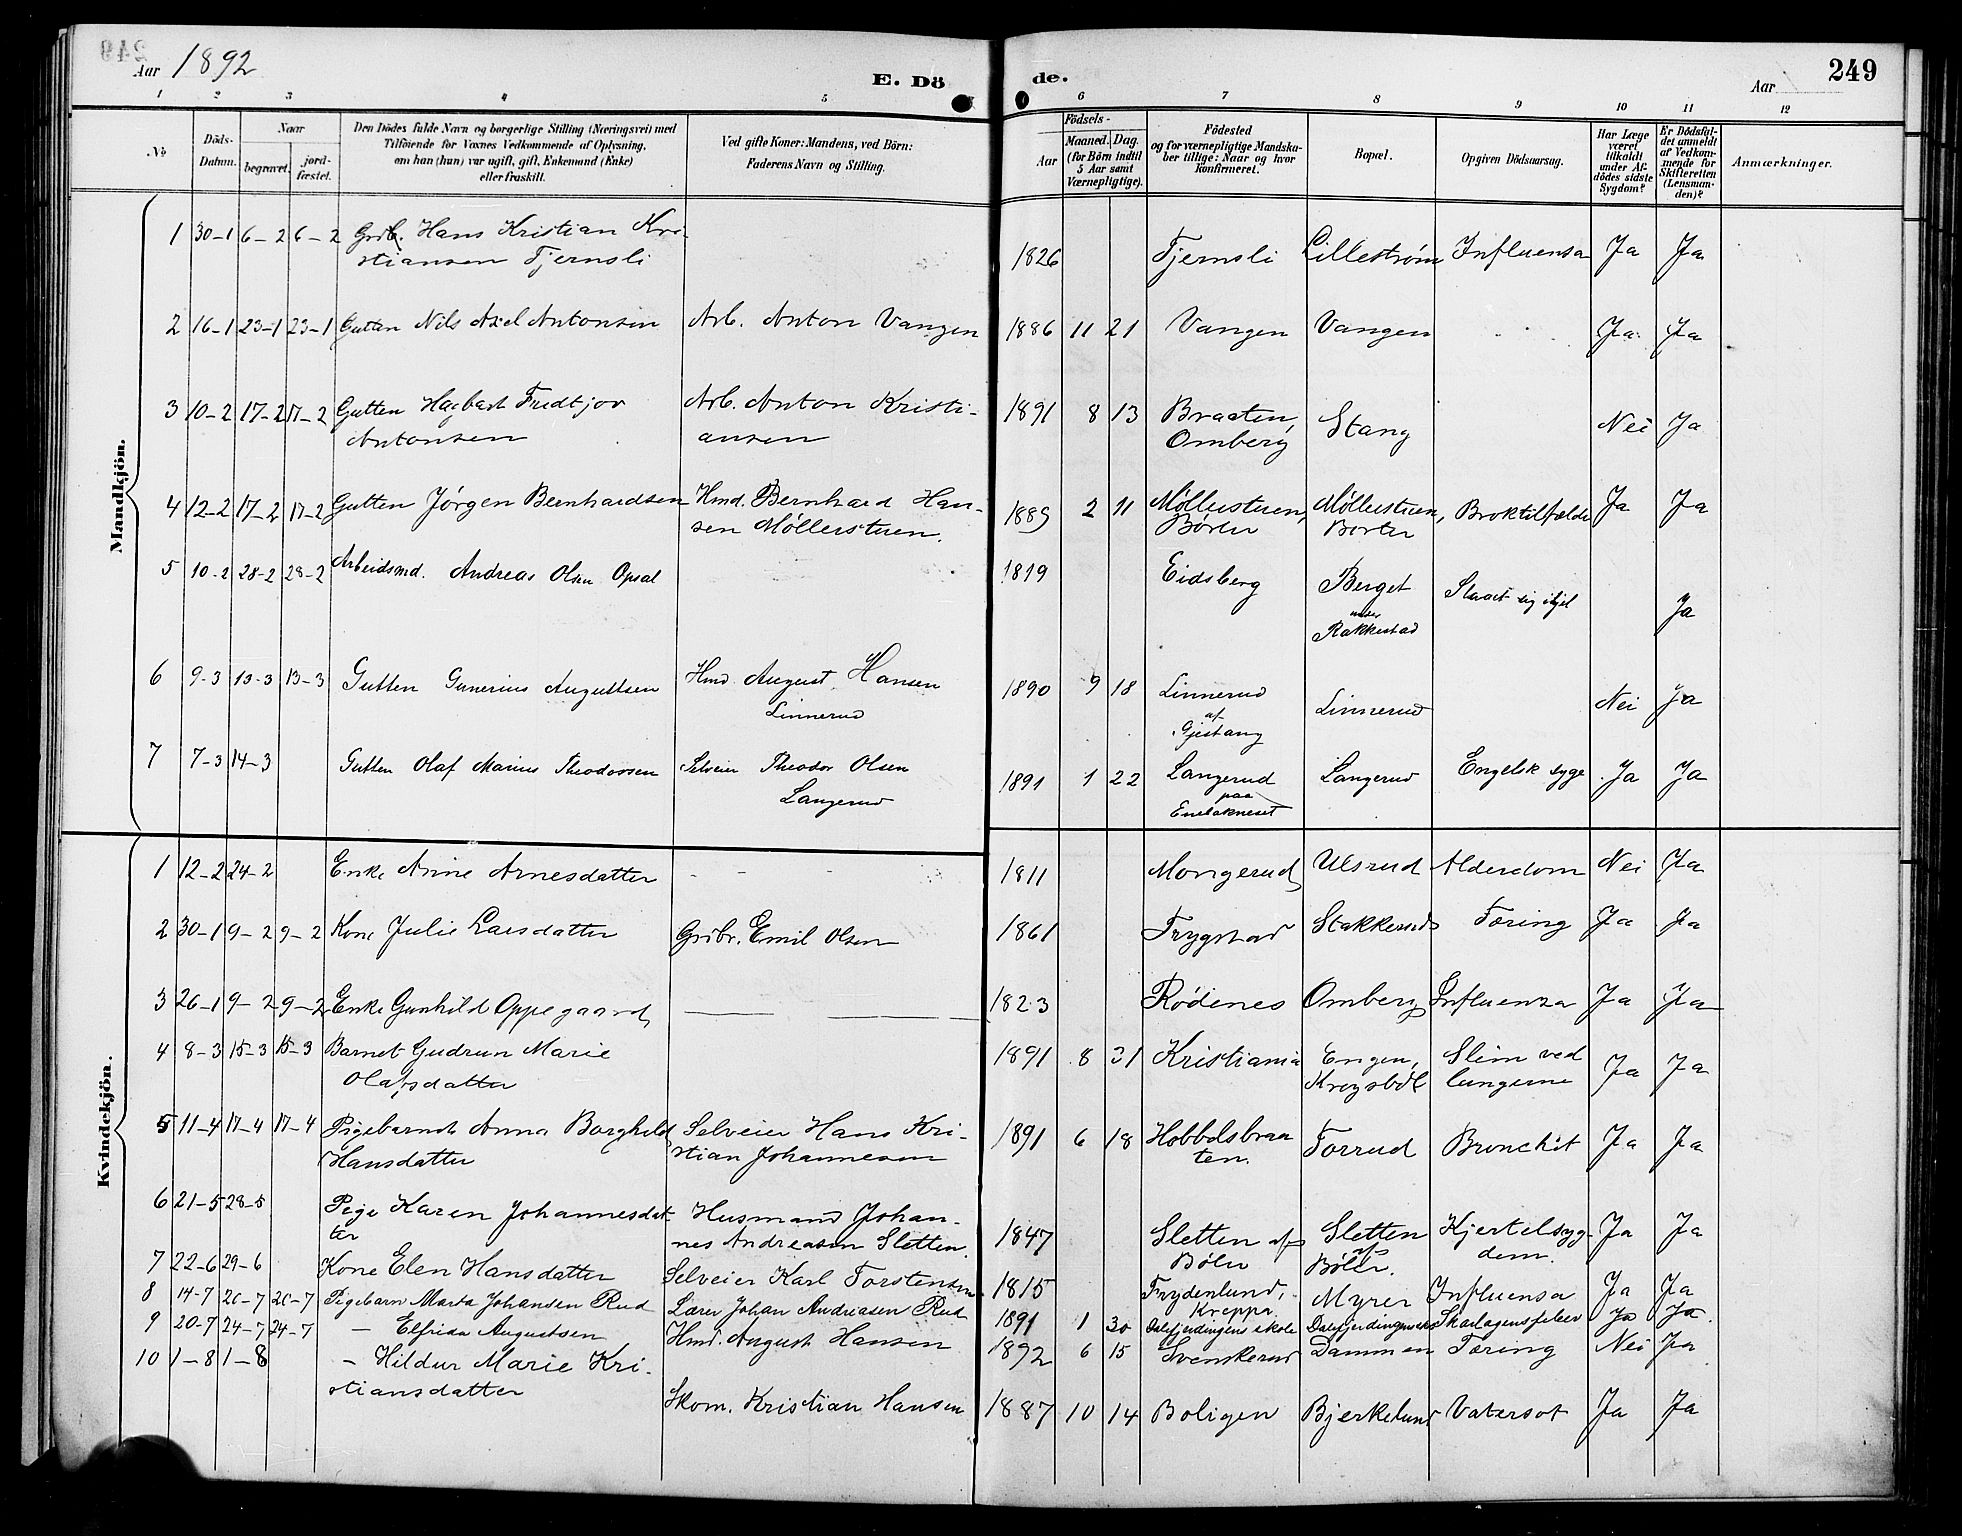 Aar 1892
E. Dö
de.
Aar
249
1 2 3 4 5 6 7 8 9 10 11 12
No
Döds-Datum.
Naar
begravet.
jord-fæstet.
Den Dödes fulde Navn og borgerlige Stilling (Næringsvei) med
Tilföiende for Voxnes Vedkommende af Oplysning,
om han (hun) var ugift, gift, Enkemand (Enke)
eller fraskilt.
Ved gifte Koner: Mandens, ved Börn:
Faderens Navn og Stilling.
Födsels-
Aar
Maaned.
Dag.
(for Börn indtil
5 Aar samt
Værnepligtige).
Födested
og for værnepligtige Mandska-
ber tillige: Naar og hvor
konfirmeret.
Bopæl.
Opgiven Dödsaarsag.
Har Læge
været
tilkaldt
under Af-
dödes sidste
Sygdom?
Er Dödsfal-
det anmeldt
af Vedkom-
mende for
Skifteretten
(Lensman-
den)?
Anmærkninger.
Mandkjön.
1 30-1 6-2 6-2 Grdb. Hans Kristian Kri-
stiansen Tjernsli
1826 Tjernsli Lillestrøm Influensa Ja Ja
2 16-1 23-1 23-1 Gutten Nils Axel Antonsen Arb. Anton Vangen 1886 11 21 Vangen Vangen Ja Ja
3 10-2 17-2 17-2 Gutten Hagbart Fridtjov Arb. Anton Kristi- 1891 8 13 Braaten, Stang Nei Ja
Antonsen ansen Omberg
4 12-2 17-2 17-2 Gutten Jørgen Bernhardsen Hmd. Bernhard Han- 1889 2 11 Møllerstuen, Møllerstuen, Broktilfælde Ja Ja
sen Møllerstuen. Børter Borter
5 10-2 28-2 28-2 Arbeidsmd. Andreas Olsen Opsal 1819 Eidsberg Berget Slaaet sig ihjel Ja
under
Rakkestad
6 9-3 13-3 13-3 Gutten Gunerius Augustsen Hmd. August Hansen 1890 9 18 Linnerud Linnerud Nei Ja
Linnerud af
Gjestang
7 7-3 14-3 Gutten Olaf Marius Theodorsen Selveier Theodor Olsen 1891 1 22 Langerud Langerud Engelsk syge Ja Ja
Langerud paa
Enebakneset
Kvindekjön.
1 12-2 24-2 Enke Anne Arnesdatter - - - 1811 Mongerud Ulsrud Alderdom Nei Ja
2 30-1 9-2 9-2 Kone Julie Larsdatter Grdbr. Emil Olsen 1861 Trygstad Stakkerud Tæring Ja Ja
3 26-1 9-2 9-2 Enke Gunhild Oppegaard 1823 Rødenes Omberg Influenza Ja Ja
4 8-3 15-3 15-3 Barnet Gudrun Marie 1891 8 31 Kristiania Engen, Slim ved Ja Ja
Olafsdatter Krogsbøl lungerne
5 11-4 17-4 17-4 Pigebarnet Anna Borghild Selveier Hans Kri- 1891 6 18 Hobbølsbraa Torrud Bronchit Ja Ja
Hansdatter stian Johannesen ten.
6 21-5 28-5 Pige Karen Johannesdat- Husmand Johan- 1847 Sletten af Sletten Kjertelsyg- Ja Ja
ter nes Andreasen Sletten. Bøler af Bøler. dom.
7 22-6 29-6 Kone Elen Hansdatter Selveier Karl Torstensen 1815 Frydenlund, Myrer Influensa Ja Ja
Kreppa
8 14-7 20-7 20-7 Pigebarn Marta Johansen Rud Lærer Johan Andreasen Rud 1891 1 30 Dalefjerdingens skole Skarlagensfeber Ja Ja.
9 20-7 24-7 24-7 — Elfrida Augustsen Hmd. August Hansen 1892 6 15 Svenskerud Dammen Tæring Nei Ja
10 1-8 1-8 — Hildur Marie Kri-
stiansdatter Skom. Kristian Hansen 1887 10 14 Boligen Bjerkelund Vatersot Ja Ja